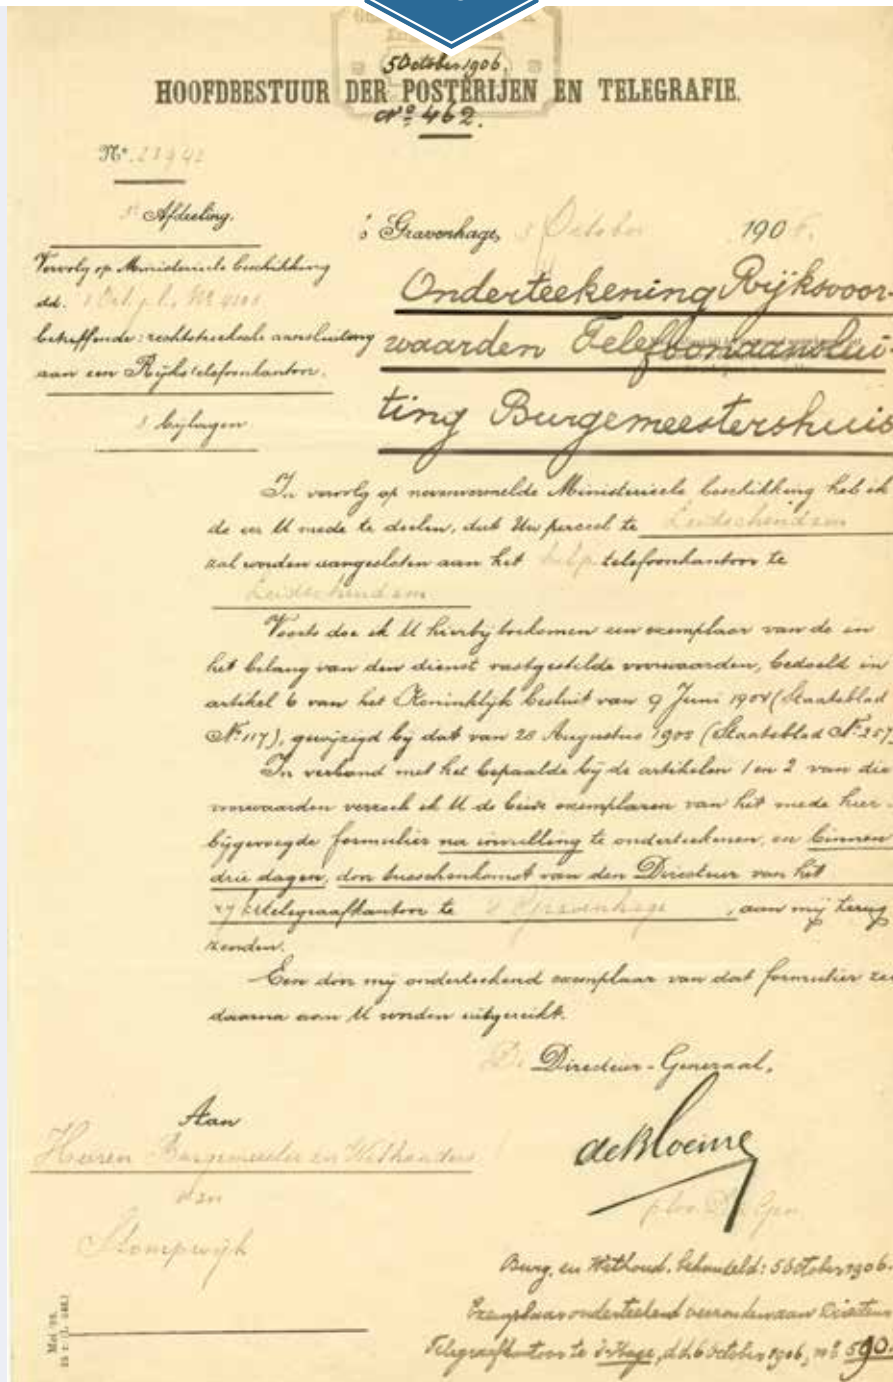 5 October 1906.
HOOFDBESTUUR DER POSTERIJEN EN TELEGRAFIE.
No 462.
No. 23942
3e Afdeeling.
's Gravenhage, 3 October 1906.
Vervolg op Ministerieele beschikking
dd. 1 Oct. j.l. No
betreffende: rechtstreeksche aansluiting
aan een Rijkstelefoonkantoor.
3 bijlagen
Onderteekening Rijksvoor-
waarden Telefoonaanslui-
ting Burgemeestershuis
In vervolg op nevenvermelde Ministerieele beschikking heb ik
de eer U mede te deelen, dat Uw perceel te Leidschendam
zal worden aangesloten aan het hulptelefoonkantoor te
Leidschendam
Voorts doe ik U hierbij toekomen een exemplaar van de in
het belang van den dienst vastgestelde voorwaarden, bedoeld in
artikel 6 van het Koninklijk besluit van 9 Juni 1904 (Staatsblad
No. 117), gewijzigd bij dat van 28 Augustus 1905 (Staatsblad No. 257)
In verband met het bepaalde bij de artikelen 1 en 2 van die
voorwaarden verzoek ik U de beide exemplaren van het mede hier-
bijgevoegde formulier na invulling te onderteekenen, en binnen
drie dagen, door tusschenkomst van den Directeur van het
telegraafkantoor te 's Gravenhage, aan mij terug
zenden.
Een door mij onderteekend exemplaar van dat formulier zal
daarna aan U worden uitgereikt.
De Directeur-Generaal,
Aan
Heeren Burgemeester en Wethouders
van
Stompwijk
Burg. en Wethoud. behandeld: 5 October 1906.
Exemplaar onderteekend verzonden aan Directeur
Telegraafkantoor te 's-Hage, d.d. 6 October 1906, no 590.